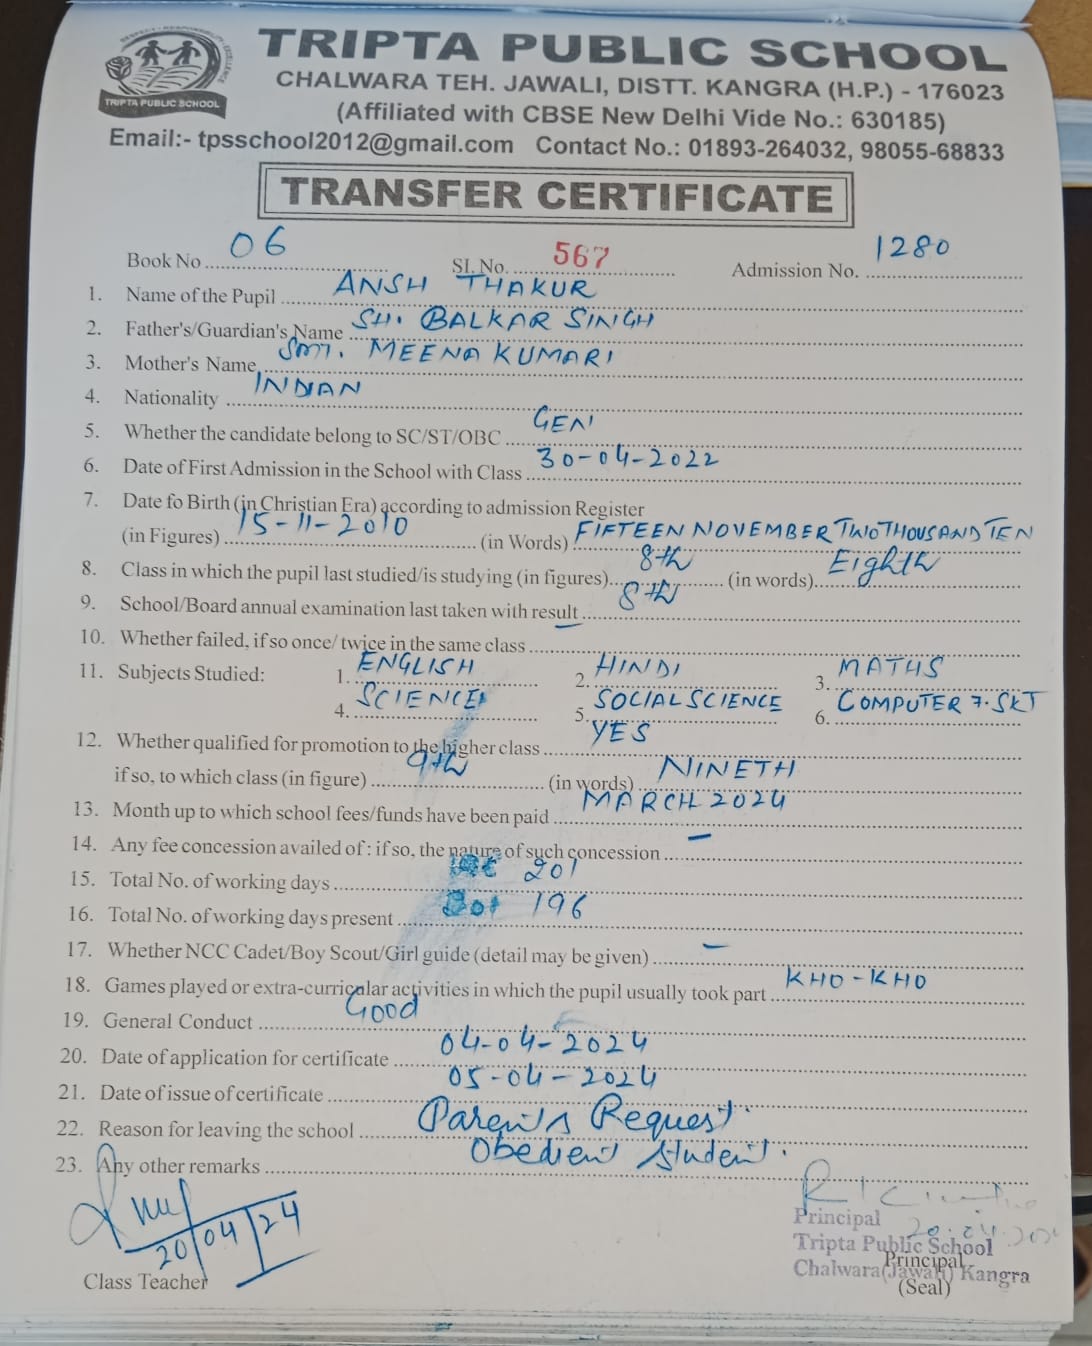 TRIPTA PUBLIC SCHOOL
CHALWARA TEH. JAWALI, DISTT. KANGRA (H.P.) - 176023
(Affiliated with CBSE New Delhi Vide No.: 630185)
Email:- tpsschool2012@gmail.com Contact No.: 01893-264032, 98055-68833
TRIPTA PUBLIC SCHOOL
TRANSFER CERTIFICATE
Book No 06 Sl. No. 567 Admission No. 1280
1. Name of the Pupil ANSH THAKUR
2. Father's/Guardian's Name SH. BALKAR SINGH
3. Mother's Name SMT. MEENA KUMARI
4. Nationality INDIAN
5. Whether the candidate belong to SC/ST/OBC GEN
6. Date of First Admission in the School with Class 30-04-2022
7. Date fo Birth (in Christian Era) according to admission Register
(in Figures) 15-11-2010 (in Words) FIFTEEN NOVEMBER TWO THOUSAND TEN
8. Class in which the pupil last studied/is studying (in figures) 8th (in words) Eighth
9. School/Board annual examination last taken with result 8th
10. Whether failed, if so once/ twice in the same class —
11. Subjects Studied: 1. ENGLISH 2. HINDI 3. MATHS
4. SCIENCE 5. SOCIAL SCIENCE 6. COMPUTER 7. SKT
12. Whether qualified for promotion to the higher class YES
if so, to which class (in figure) 9th (in words) NINETH
13. Month up to which school fees/funds have been paid MARCH 2024
14. Any fee concession availed of : if so, the nature of such concession —
15. Total No. of working days 201
16. Total No. of working days present 196
17. Whether NCC Cadet/Boy Scout/Girl guide (detail may be given) —
18. Games played or extra-curricular activities in which the pupil usually took part KHO-KHO
19. General Conduct Good
20. Date of application for certificate 04-04-2024
21. Date of issue of certificate 05-04-2024
22. Reason for leaving the school Parent's Request.
23. Any other remarks Obedient Student.
20/04/24
Class Teacher
Principal
Tripta Public School
Chalwara(Jawali) Kangra
Principal
(Seal)